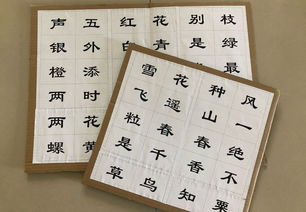 声 五 红 花 别 枝
银 外 白 青 是 绿
橙 添 最
两 时
两 花
螺 黄
雪 花 种 风
飞 遥 山 一
粒 春 春 绝
是 千 香 不
草 鸟 知 栗